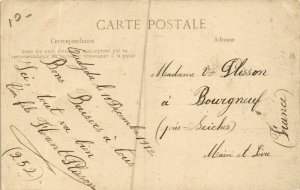 12
CARTE POSTALE
Correspondance
Adresse
le 1 Décembre 1912
Bons Baisers à tous
Ici tout va bien
Le fils Henri Plisson
(252)
Madame Vve Plisson
à Bourgneuf
(près Seiches)
Maine et Loire
(France)